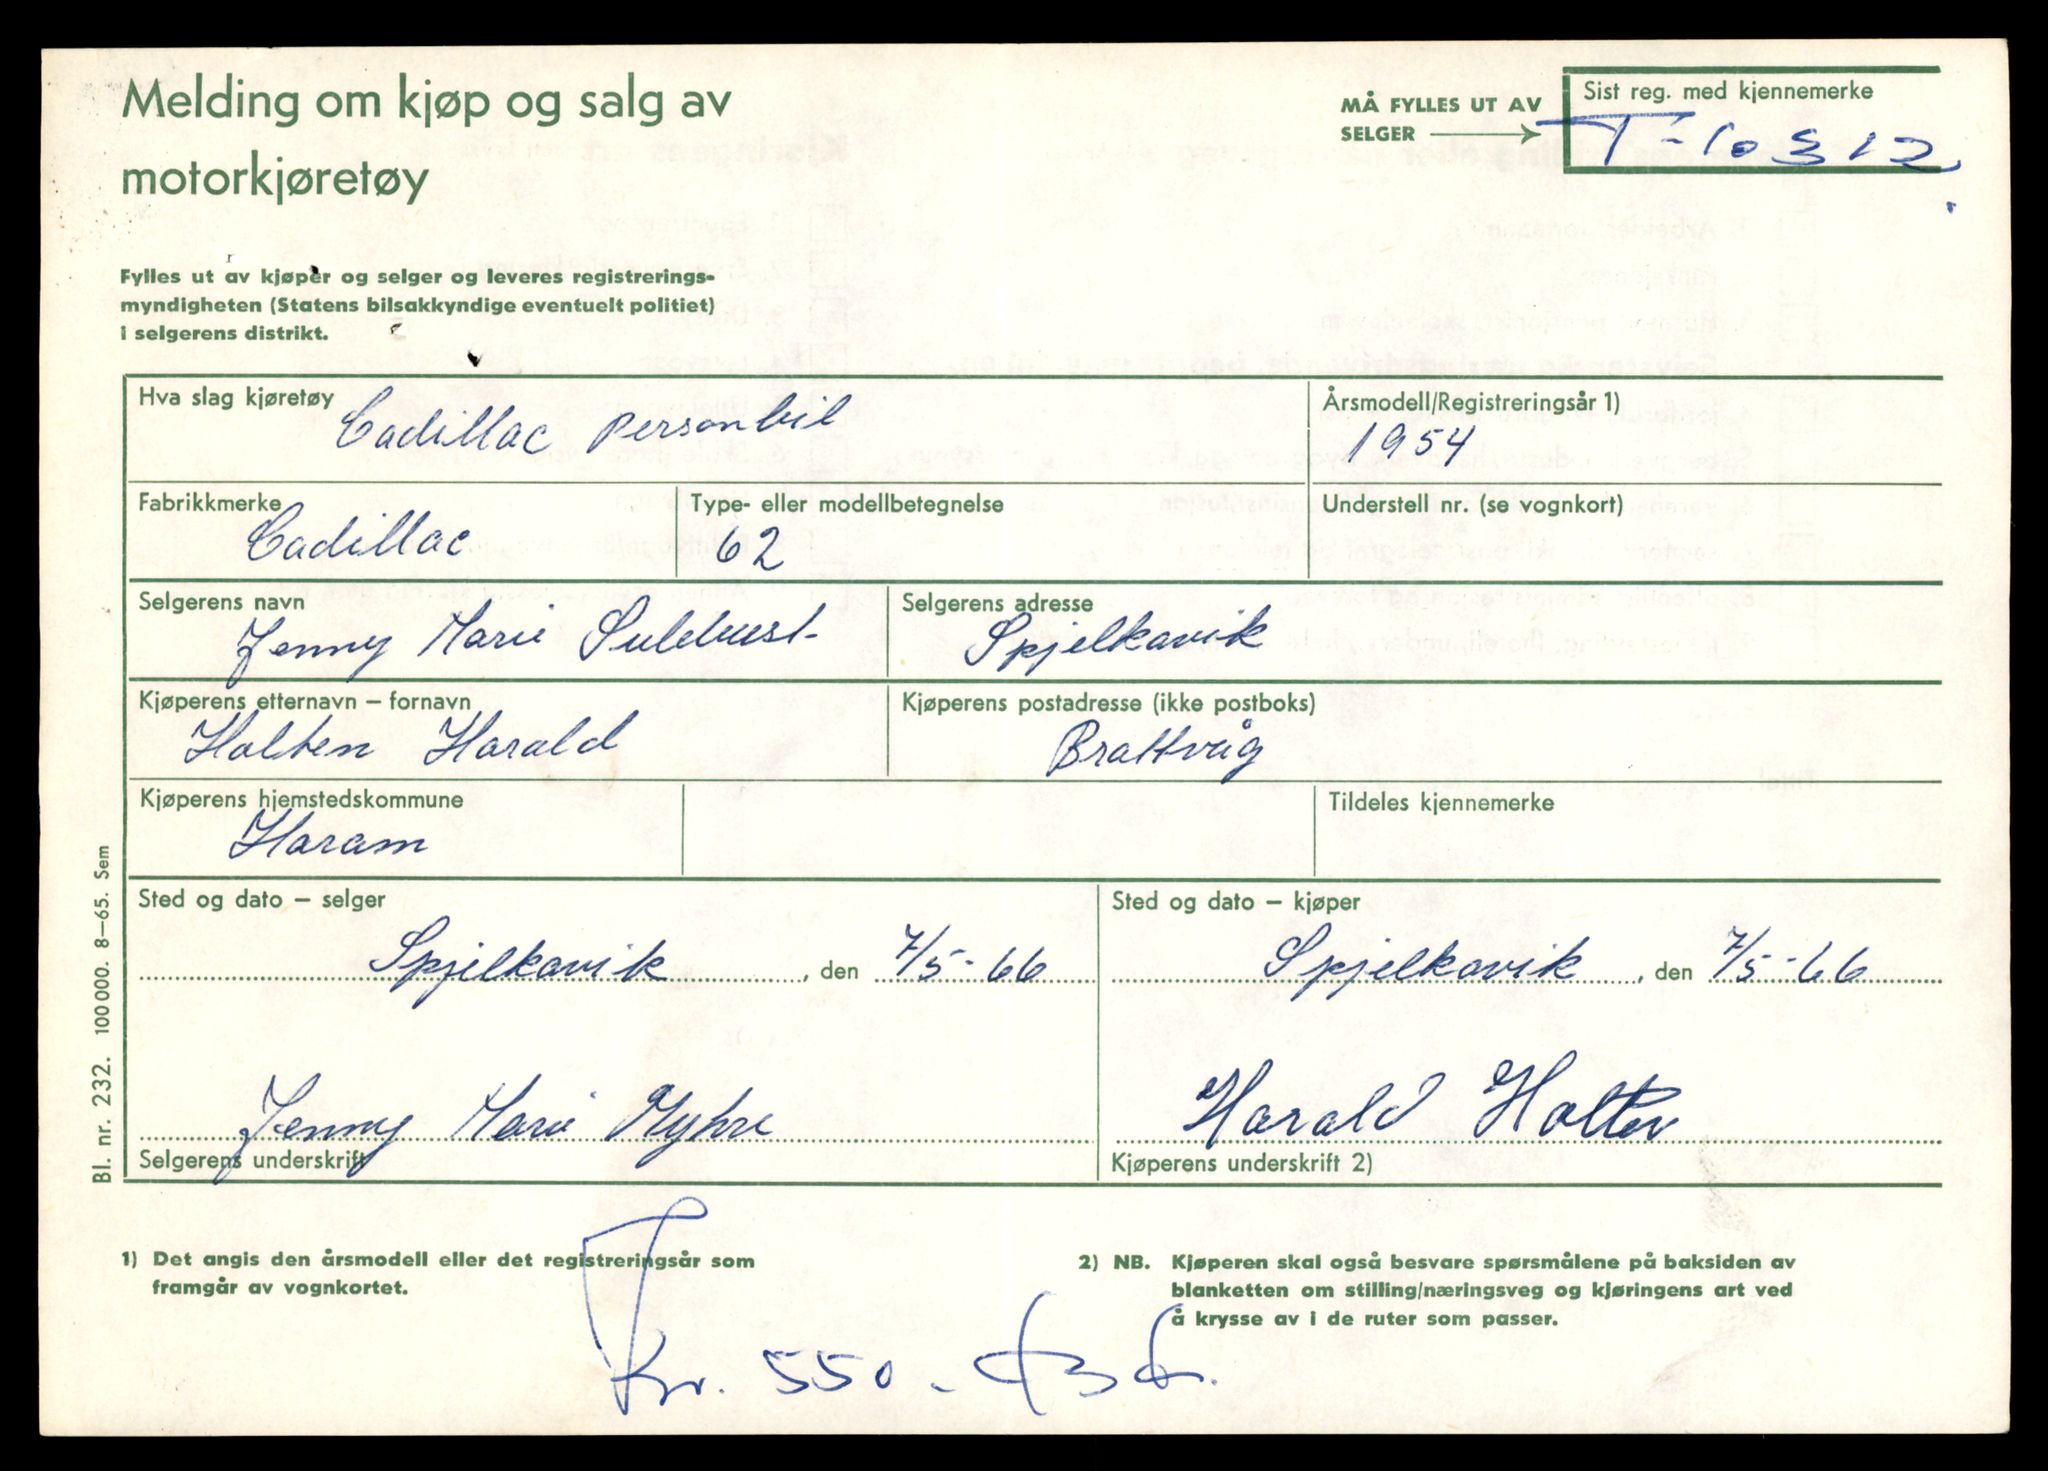 Melding om kjøp og salg av
motorkjøretøy
MÅ FYLLES UT AV
SELGER
Sist reg. med kjennemerke
T-10312
Fylles ut av kjøper og selger og leveres registrerings-
myndigheten (Statens bilsakkyndige eventuelt politiet)
i selgerens distrikt.
Hva slag kjøretøy
Cadillac personbil
Årsmodell/Registreringsår 1)
1954
Fabrikkmerke
Cadillac
Type- eller modellbetegnelse
62
Understell nr. (se vognkort)
Selgerens navn
Jenny Marie Sulebust
Selgerens adresse
Spjelkavik
Kjøperens etternavn – fornavn
Holten Harald
Kjøperens postadresse (ikke postboks)
Brattvåg
Kjøperens hjemstedskommune
Haram
Tildeles kjennemerke
Sted og dato – selger
Spjelkavik, den 7/5-66
Sted og dato – kjøper
Spjelkavik, den 7/5-66
Jenny Marie Myhre
Selgerens underskrift
Harald Holten
Kjøperens underskrift 2)
Bl. nr. 232. 100 000. 8–65. Sem
1) Det angis den årsmodell eller det registreringsår som
framgår av vognkortet.
2) NB. Kjøperen skal også besvare spørsmålene på baksiden av
blanketten om stilling/næringsveg og kjøringens art ved
å krysse av i de ruter som passer.
Kr. 550.-